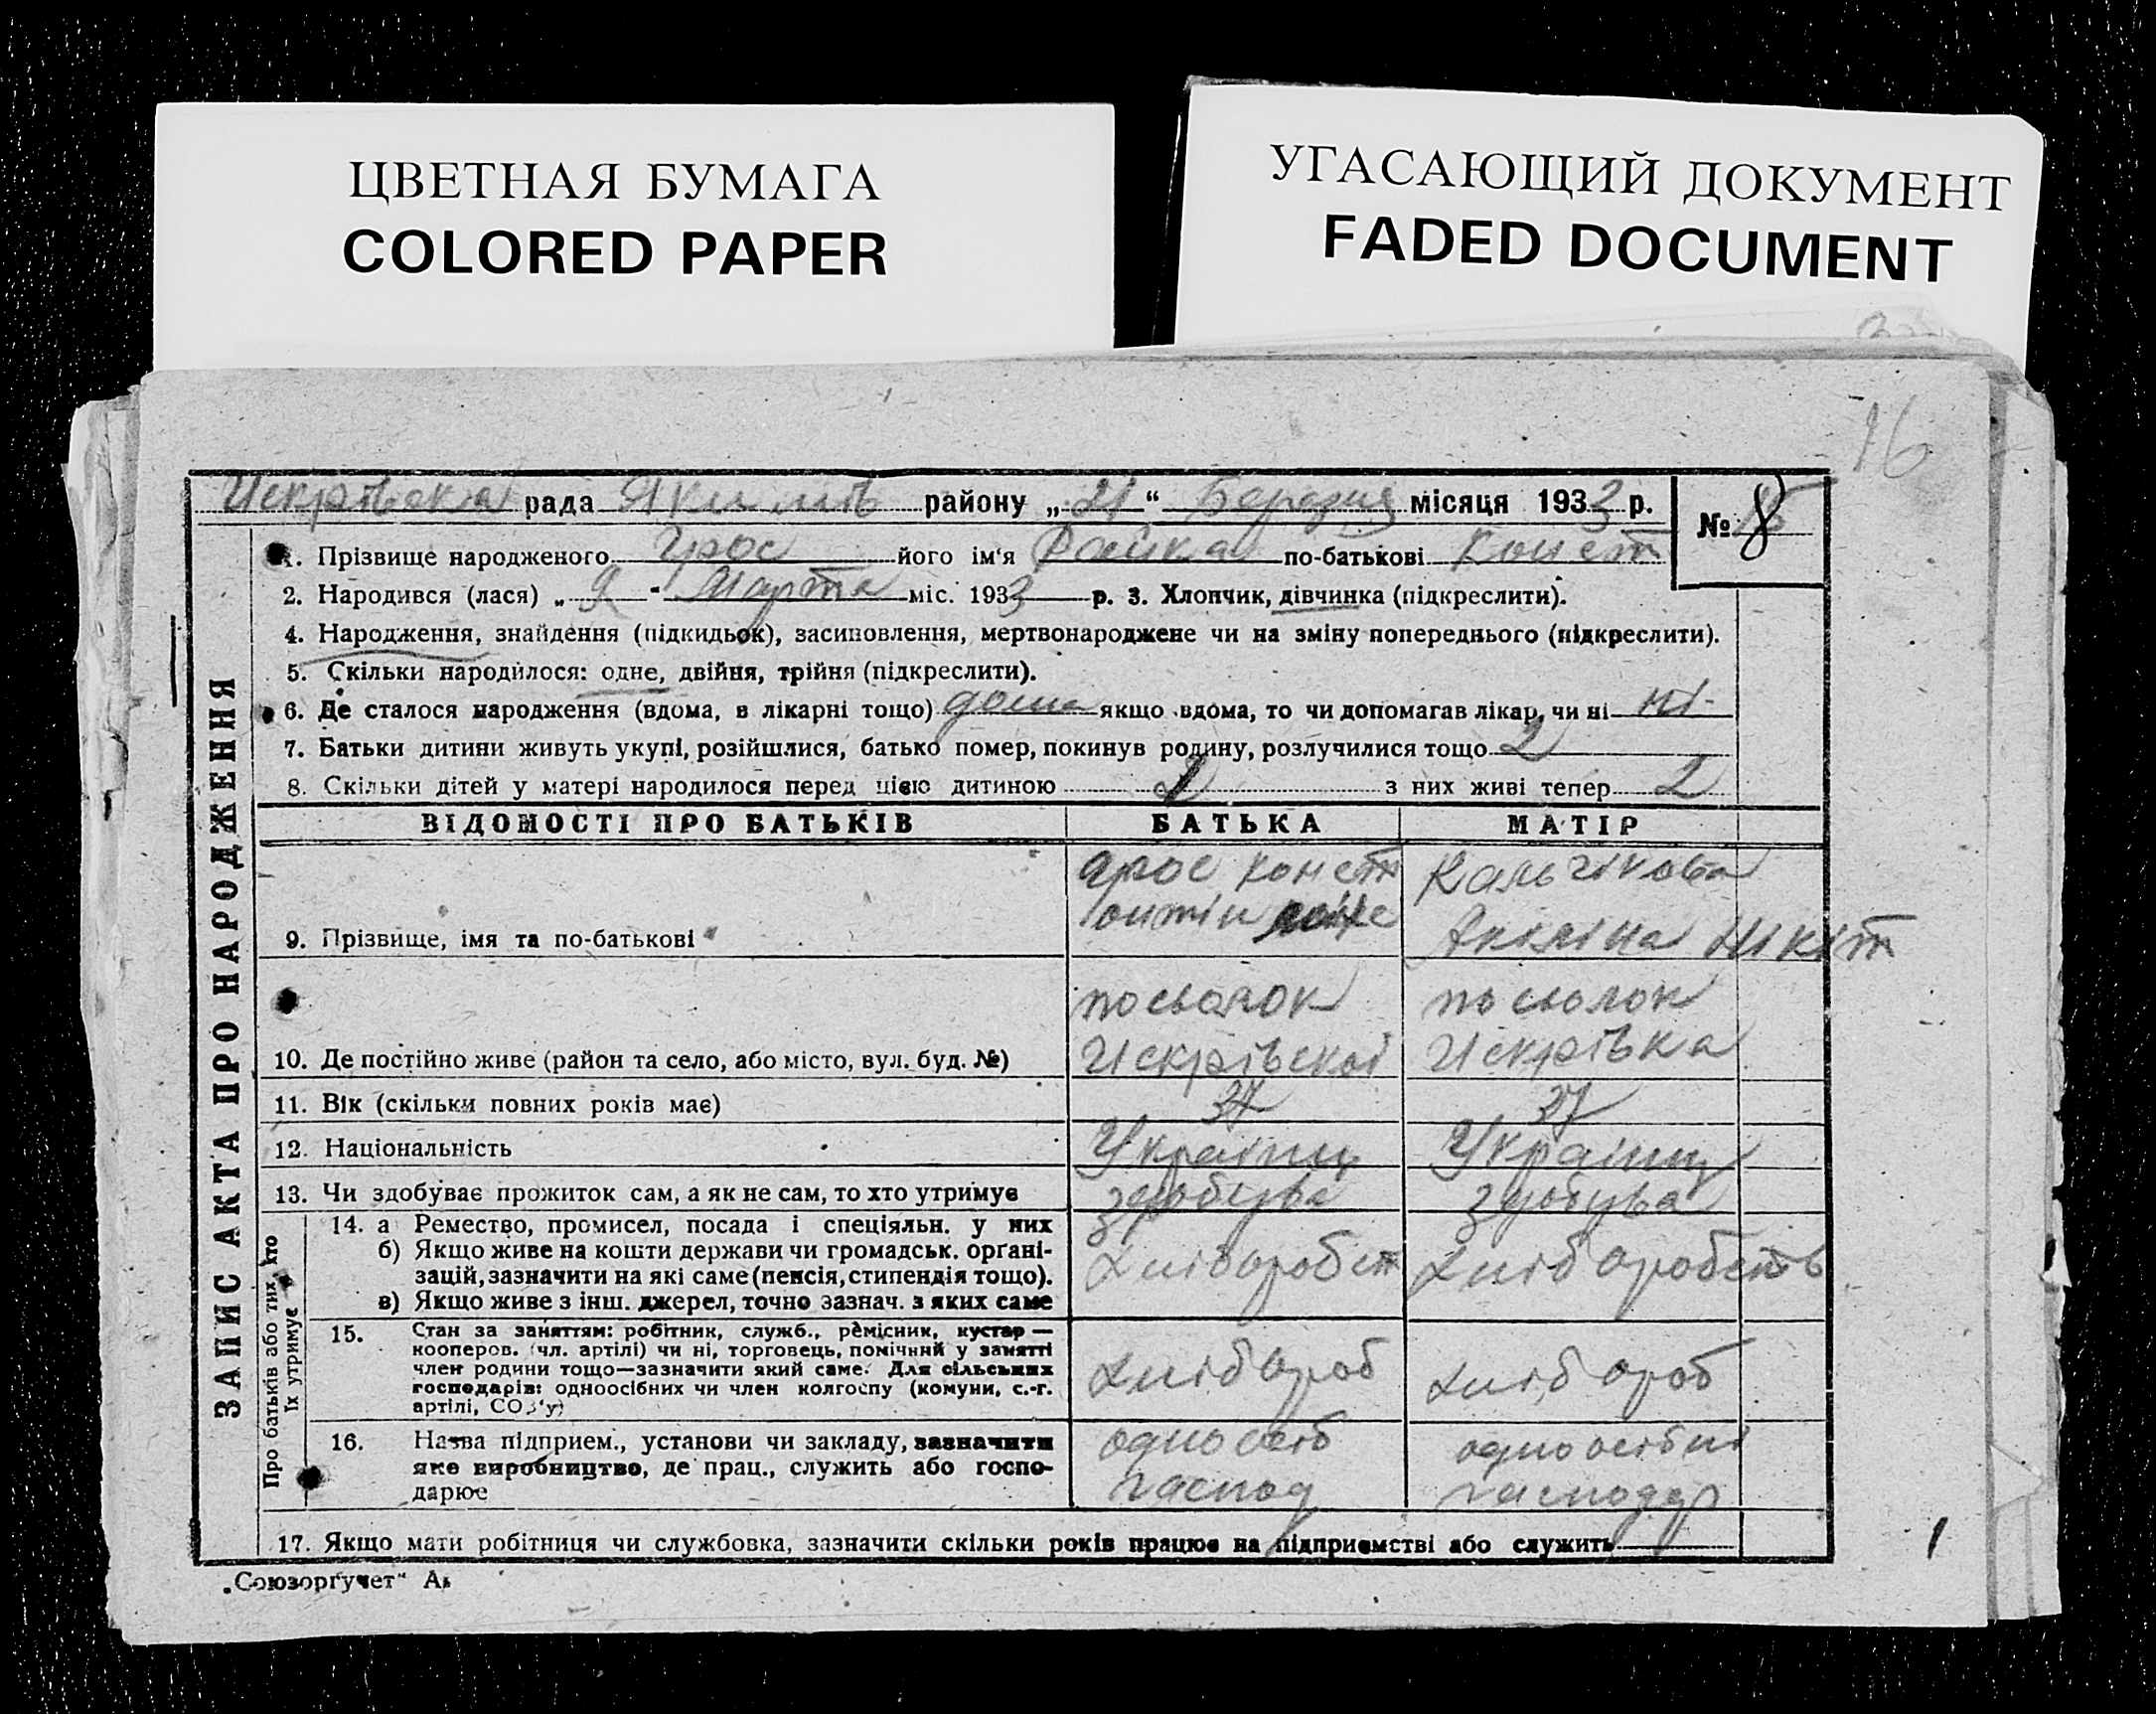 ЦВЕТНАЯ БУМАГА
COLORED PAPER
УГАСАЮЩИЙ ДОКУМЕНТ
FADED DOCUMENT
16
Искрівска рада Якимів району „21“ Березня місяця 1933 р.
№ 8
1. Прізвище народженого Грос його ім'я Раїка по-батькові Конст
2. Народився (лася) „9" Марта міс. 1933 р. 3. Хлопчик, дівчинка (підкреслити).
4. Народження, знайдення (підкидьок), засиновлення, мертвонароджене чи на зміну попереднього (підкреслити).
5. Скільки народилося: одне, двійня, трійня (підкреслити).
6. Де сталося народження (вдома, в лікарні тощо) дома якщо вдома, то чи допомагав лікар, чи ні ні
7. Батьки дитини живуть укупі, розійшлися, батько помер, покинув родину, розлучилися тощо 2
8. Скільки дітей у матері народилося перед цією дитиною з них живі тепер 2
ЗАПИС АКТА ПРО НАРОДЖЕННЯ
ВІДОМОСТІ ПРО БАТЬКІВ БАТЬКА МАТІР
9. Прізвище, імя та по-батькові
Грос конст
онтін
Кальчікова
Акіліна Нікіт
10. Де постійно живе (район та село, або місто, вул. буд. №)
посьолок
Искрівскої
посьолок
Искрівка
11. Вік (скільки повних років має) 37 37
12. Національність Украінц Украінц
13. Чи здобуває прожиток сам, а як не сам, то хто утримує здобува здобува
Про батьків або тих, хто
їх утримує
14. а Ремество, промисел, посада і спеціяльн. у них
б) Якщо живе на кошти держави чи громадськ. орґані-
зацій, зазначити на які саме (пенсія, стипендія тощо).
в) Якщо живе з інш. джерел, точно зазнач. з яких саме
хліборобст хліборобств
15. Стан за заняттям: робітник, служб., ремісник, кустар —
кооперов. (чл. артілі) чи ні, торговець, помічний у занятті
член родини тощо—зазначити який саме. Для сільських
господарів: одноосібних чи член колгоспу (комуни, с.-г.
артілі, СОЗ'у)
хлібороб хлібороб
16. Назва підприєм., установи чи закладу, зазначити
яке виробництво, де прац., служить або госпо-
дарює
одноосіб
гаспод
одноосібні
гасподар
17. Якщо мати робітниця чи службовка, зазначити скільки років працює на підприємстві або служить
„Союзорґучет"